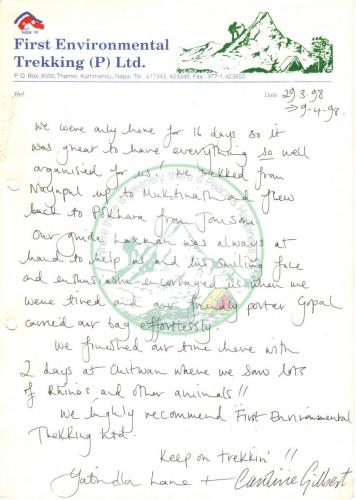 First Environmental
Trekking (P) Ltd.
P. O. Box: 8056, Thamel, Kathmandu, Nepal. Tel.: 417343, 424346, Fax: 977-1-423855
Ref.
Date: 29.3.98
→ 9-4-98.
We were only here for 16 days so it
was great to have everything so well
organised for us! We trekked from
Nayapul up to Muktinath and flew
back to Pokhara from Jomsom
Our guide Laxman was always at
hand to help us and his smiling face
and enthusiasm encouraged us when we
were tired and our friendly porter Gopal
carried our bag effortlessly.
We finished our time here with
2 days at Chitwan where we saw lots
of Rhinos and other animals!!
We highly recommend First Environmental
Trekking Ltd.
Keep on trekkin' !!
Lane + Caroline Gilbert